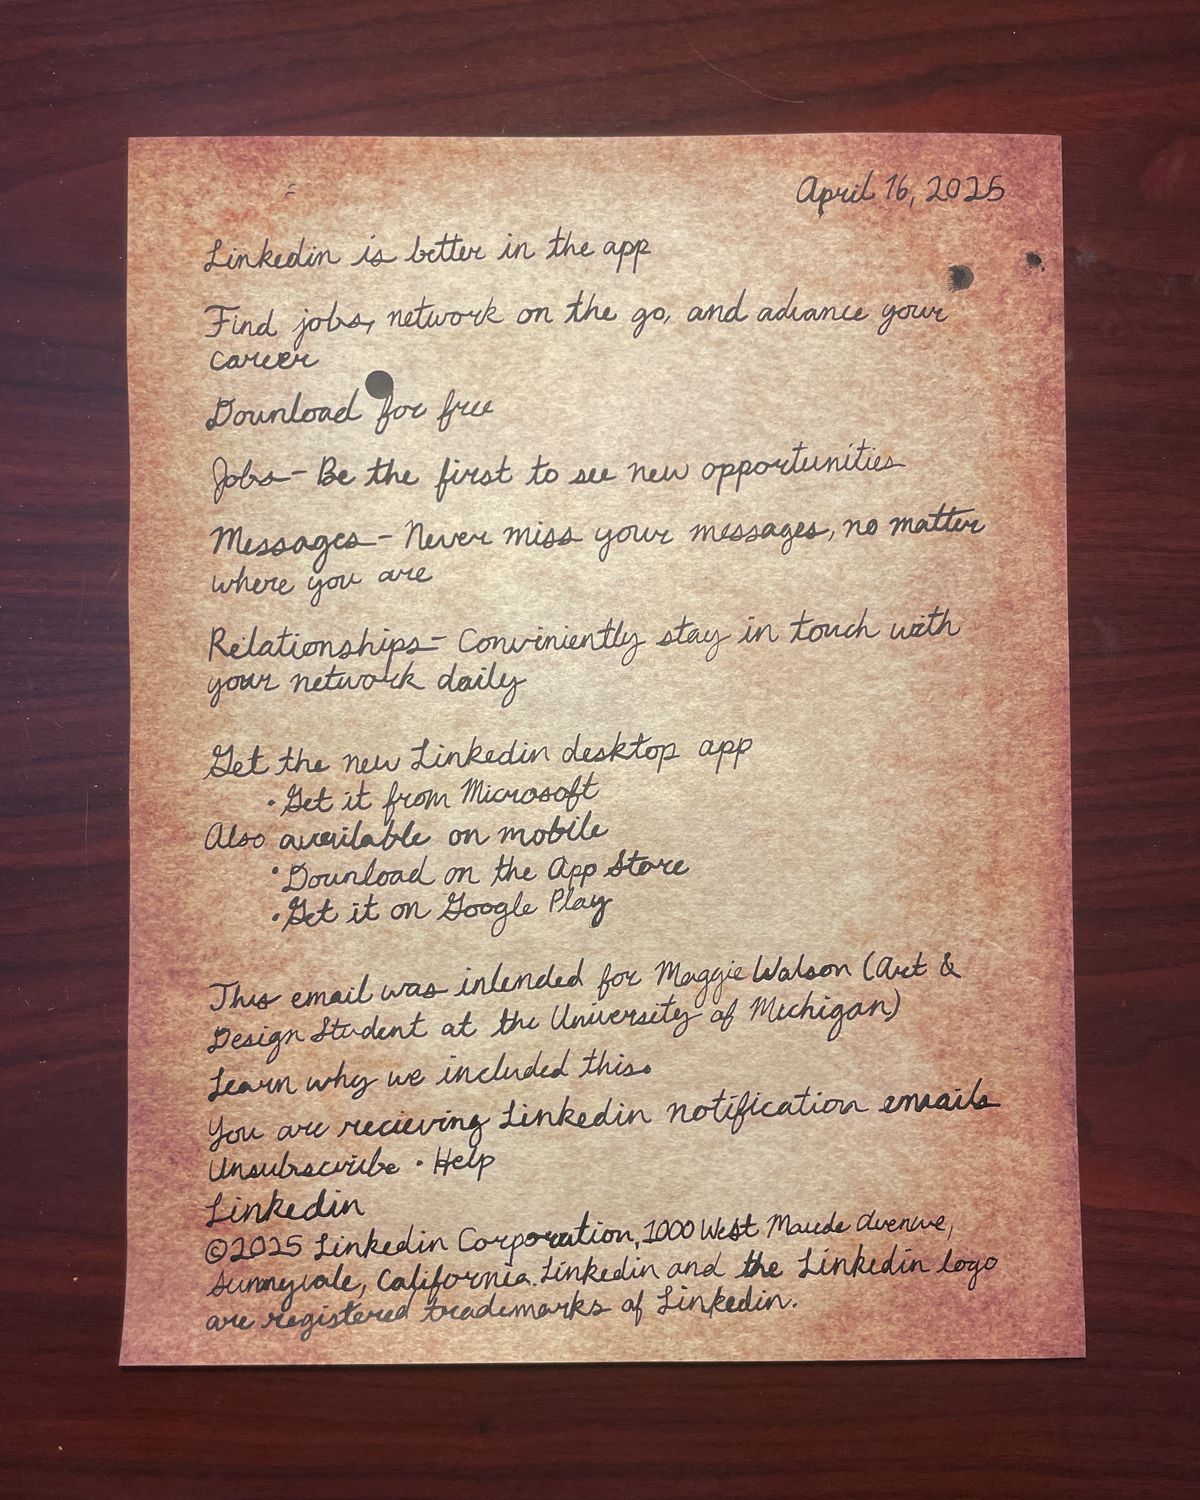 April 16, 2025
Linkedin is better in the app
Find jobs, network on the go, and advance your
career
Download for free
Jobs - Be the first to see new opportunities
Messages - Never miss your messages, no matter
where you are
Relationships - Conviniently stay in touch with
your network daily
Get the new Linkedin desktop app
• Get it from Microsoft
Also available on mobile
• Download on the App Store
• Get it on Google Play
This email was intended for Maggie Walson (Art &
Design Student at the University of Michigan)
Learn why we included this.
You are recieving Linkedin notification emails
Unsubscribe • Help
Linkedin
©2025 Linkedin Corporation, 1000 West Maude Avenue,
Sunnyvale, California. Linkedin and the Linkedin logo
are registered trademarks of Linkedin.